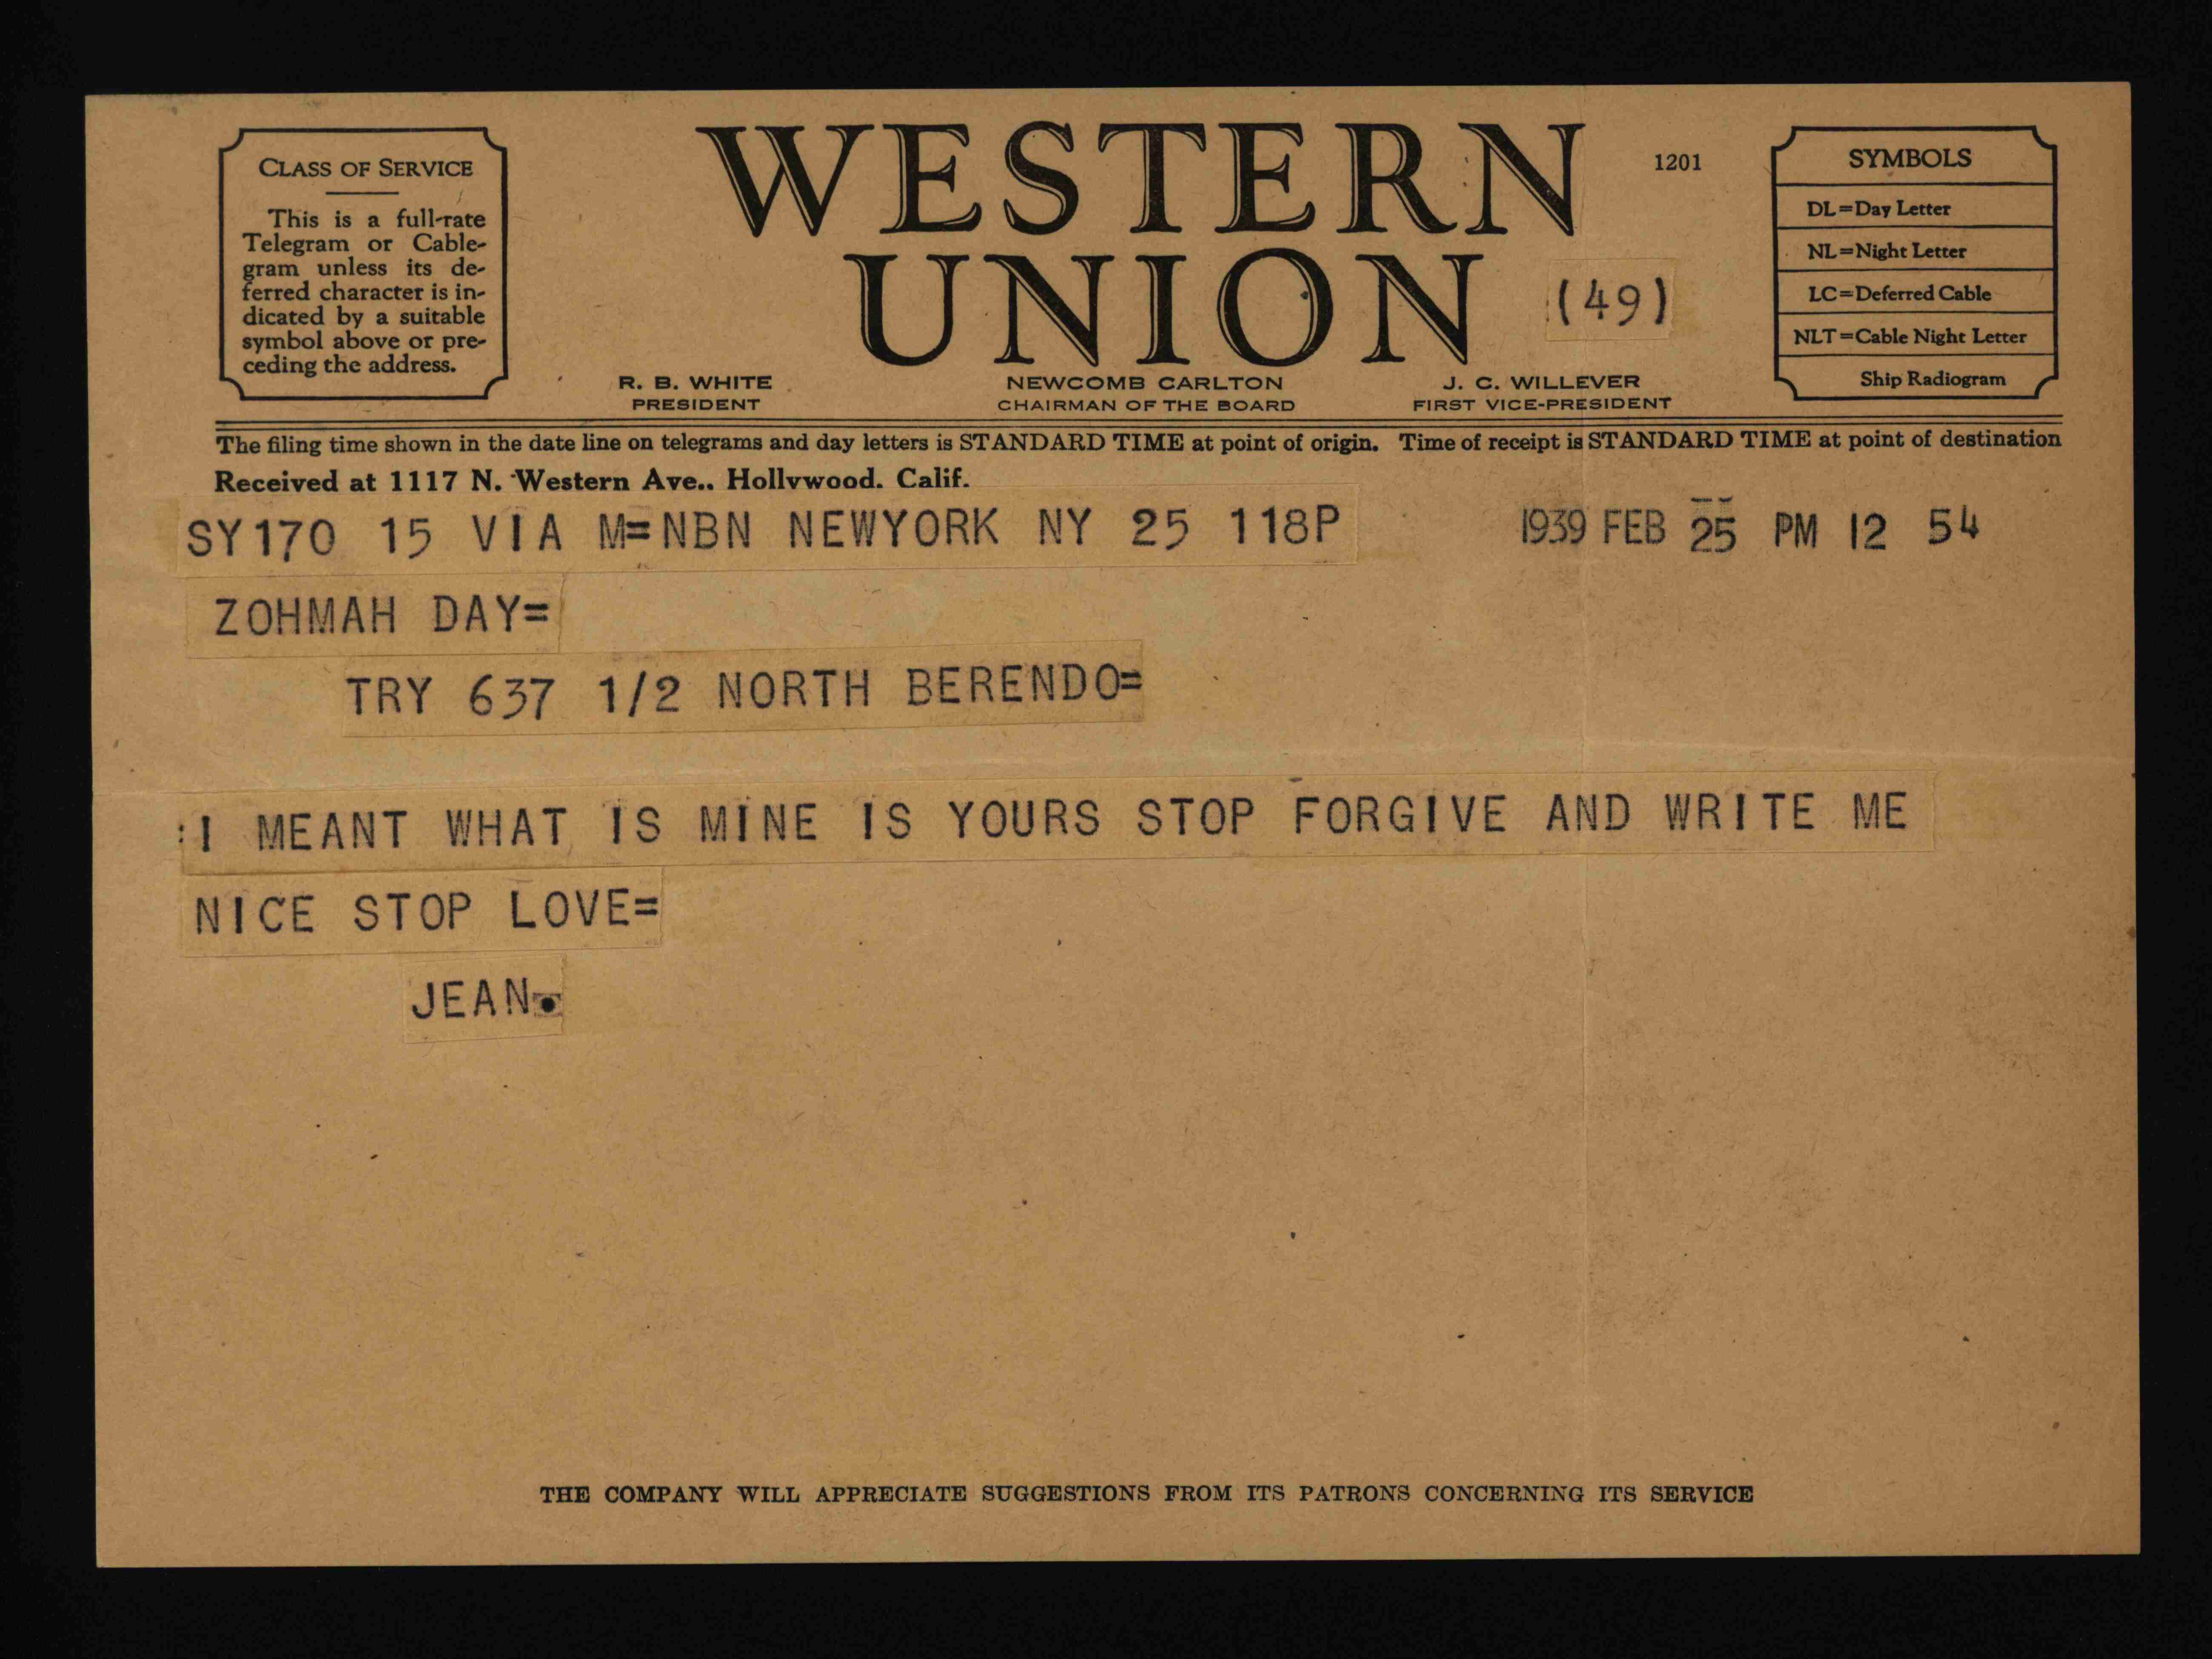 CLASS OF SERVICE
This is a full-rate
Telegram or Cable-
gram unless its de-
ferred character is in-
dicated by a suitable
symbol above or pre-
ceding the address.
WESTERN
UNION
1201
(49)
R. B. WHITE
PRESIDENT
NEWCOMB CARLTON
CHAIRMAN OF THE BOARD
J. C. WILLEVER
FIRST VICE-PRESIDENT
SYMBOLS
DL=Day Letter
NL=Night Letter
LC=Deferred Cable
NLT=Cable Night Letter
Ship Radiogram
The filing time shown in the date line on telegrams and day letters is STANDARD TIME at point of origin. Time of receipt is STANDARD TIME at point of destination
Received at 1117 N. Western Ave., Hollywood, Calif.
SY170 15 VIA M=NBN NEWYORK NY 25 118P 1939 FEB 25 PM 12 54
ZOHMAH DAY=
TRY 637 1/2 NORTH BERENDO=
:I MEANT WHAT IS MINE IS YOURS STOP FORGIVE AND WRITE ME
NICE STOP LOVE=
JEAN.
THE COMPANY WILL APPRECIATE SUGGESTIONS FROM ITS PATRONS CONCERNING ITS SERVICE